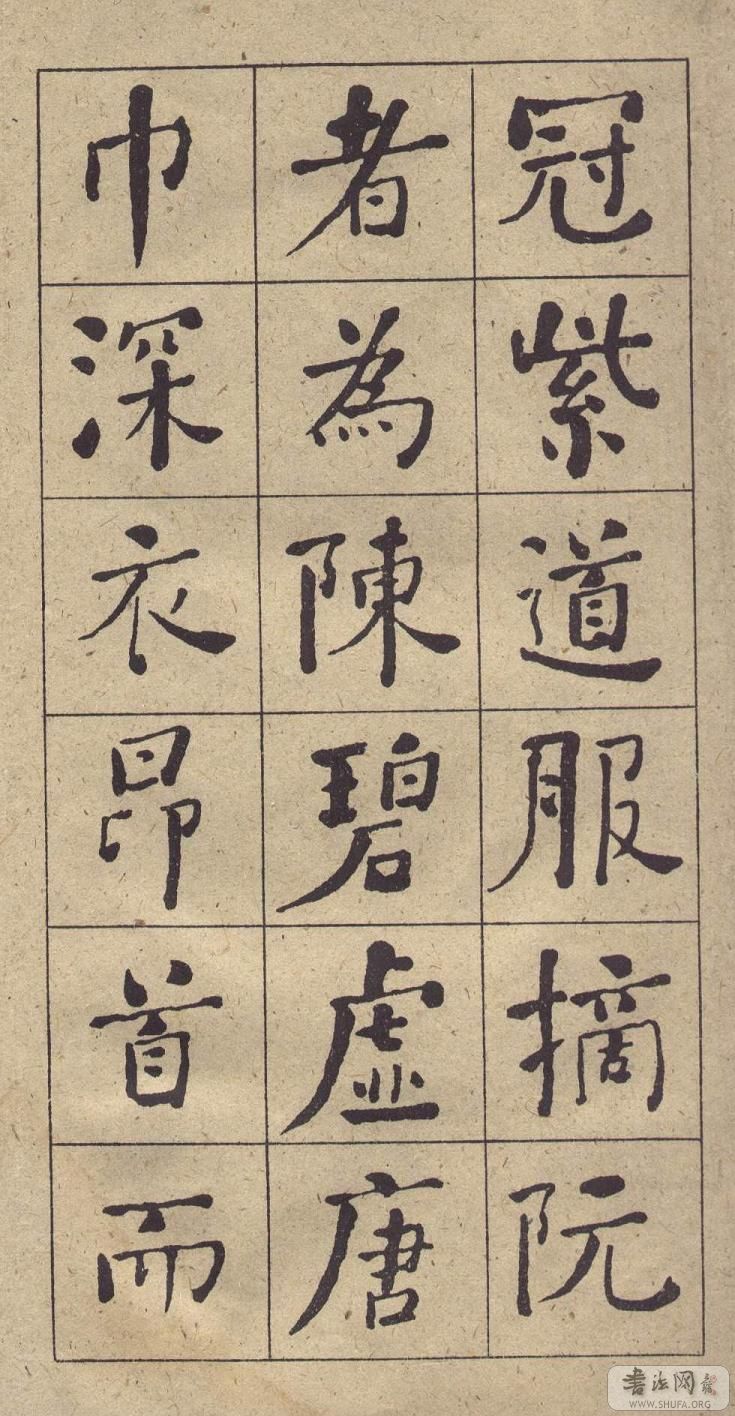 冠紫道服摘阮
者為陳碧虛唐
巾深衣昂首而
書法网
WWW.SHUFA.ORG